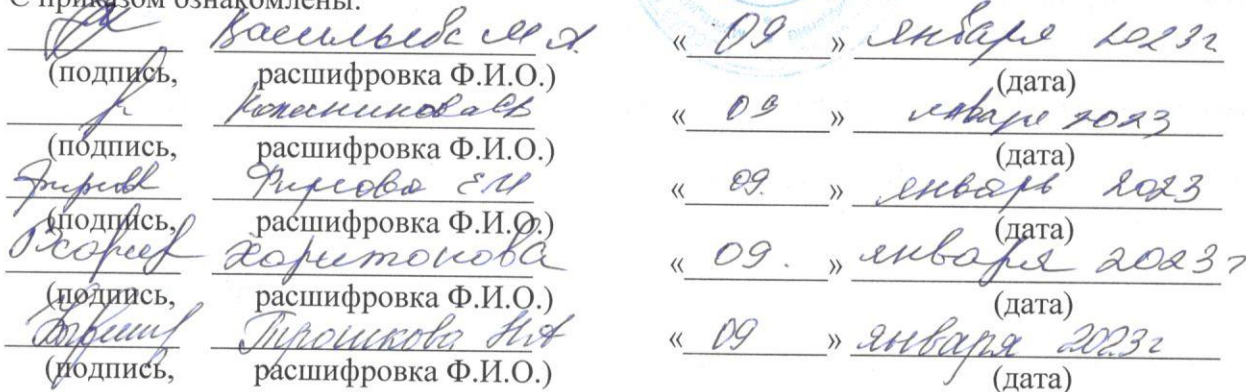 С приказом ознакомлены:
Васильева М А. « 09 » января 2023г
(подпись, расшифровка Ф.И.О.) (дата)
« 09 » января 2023
(подпись, расшифровка Ф.И.О.) (дата)
Фирсова Е И « 09. » январь 2023
(подпись, расшифровка Ф.И.О.) (дата)
Харитонова « 09. » января 2023г
(подпись, расшифровка Ф.И.О.) (дата)
Трошкова НА « 09 » января 2023г
(подпись, расшифровка Ф.И.О.) (дата)